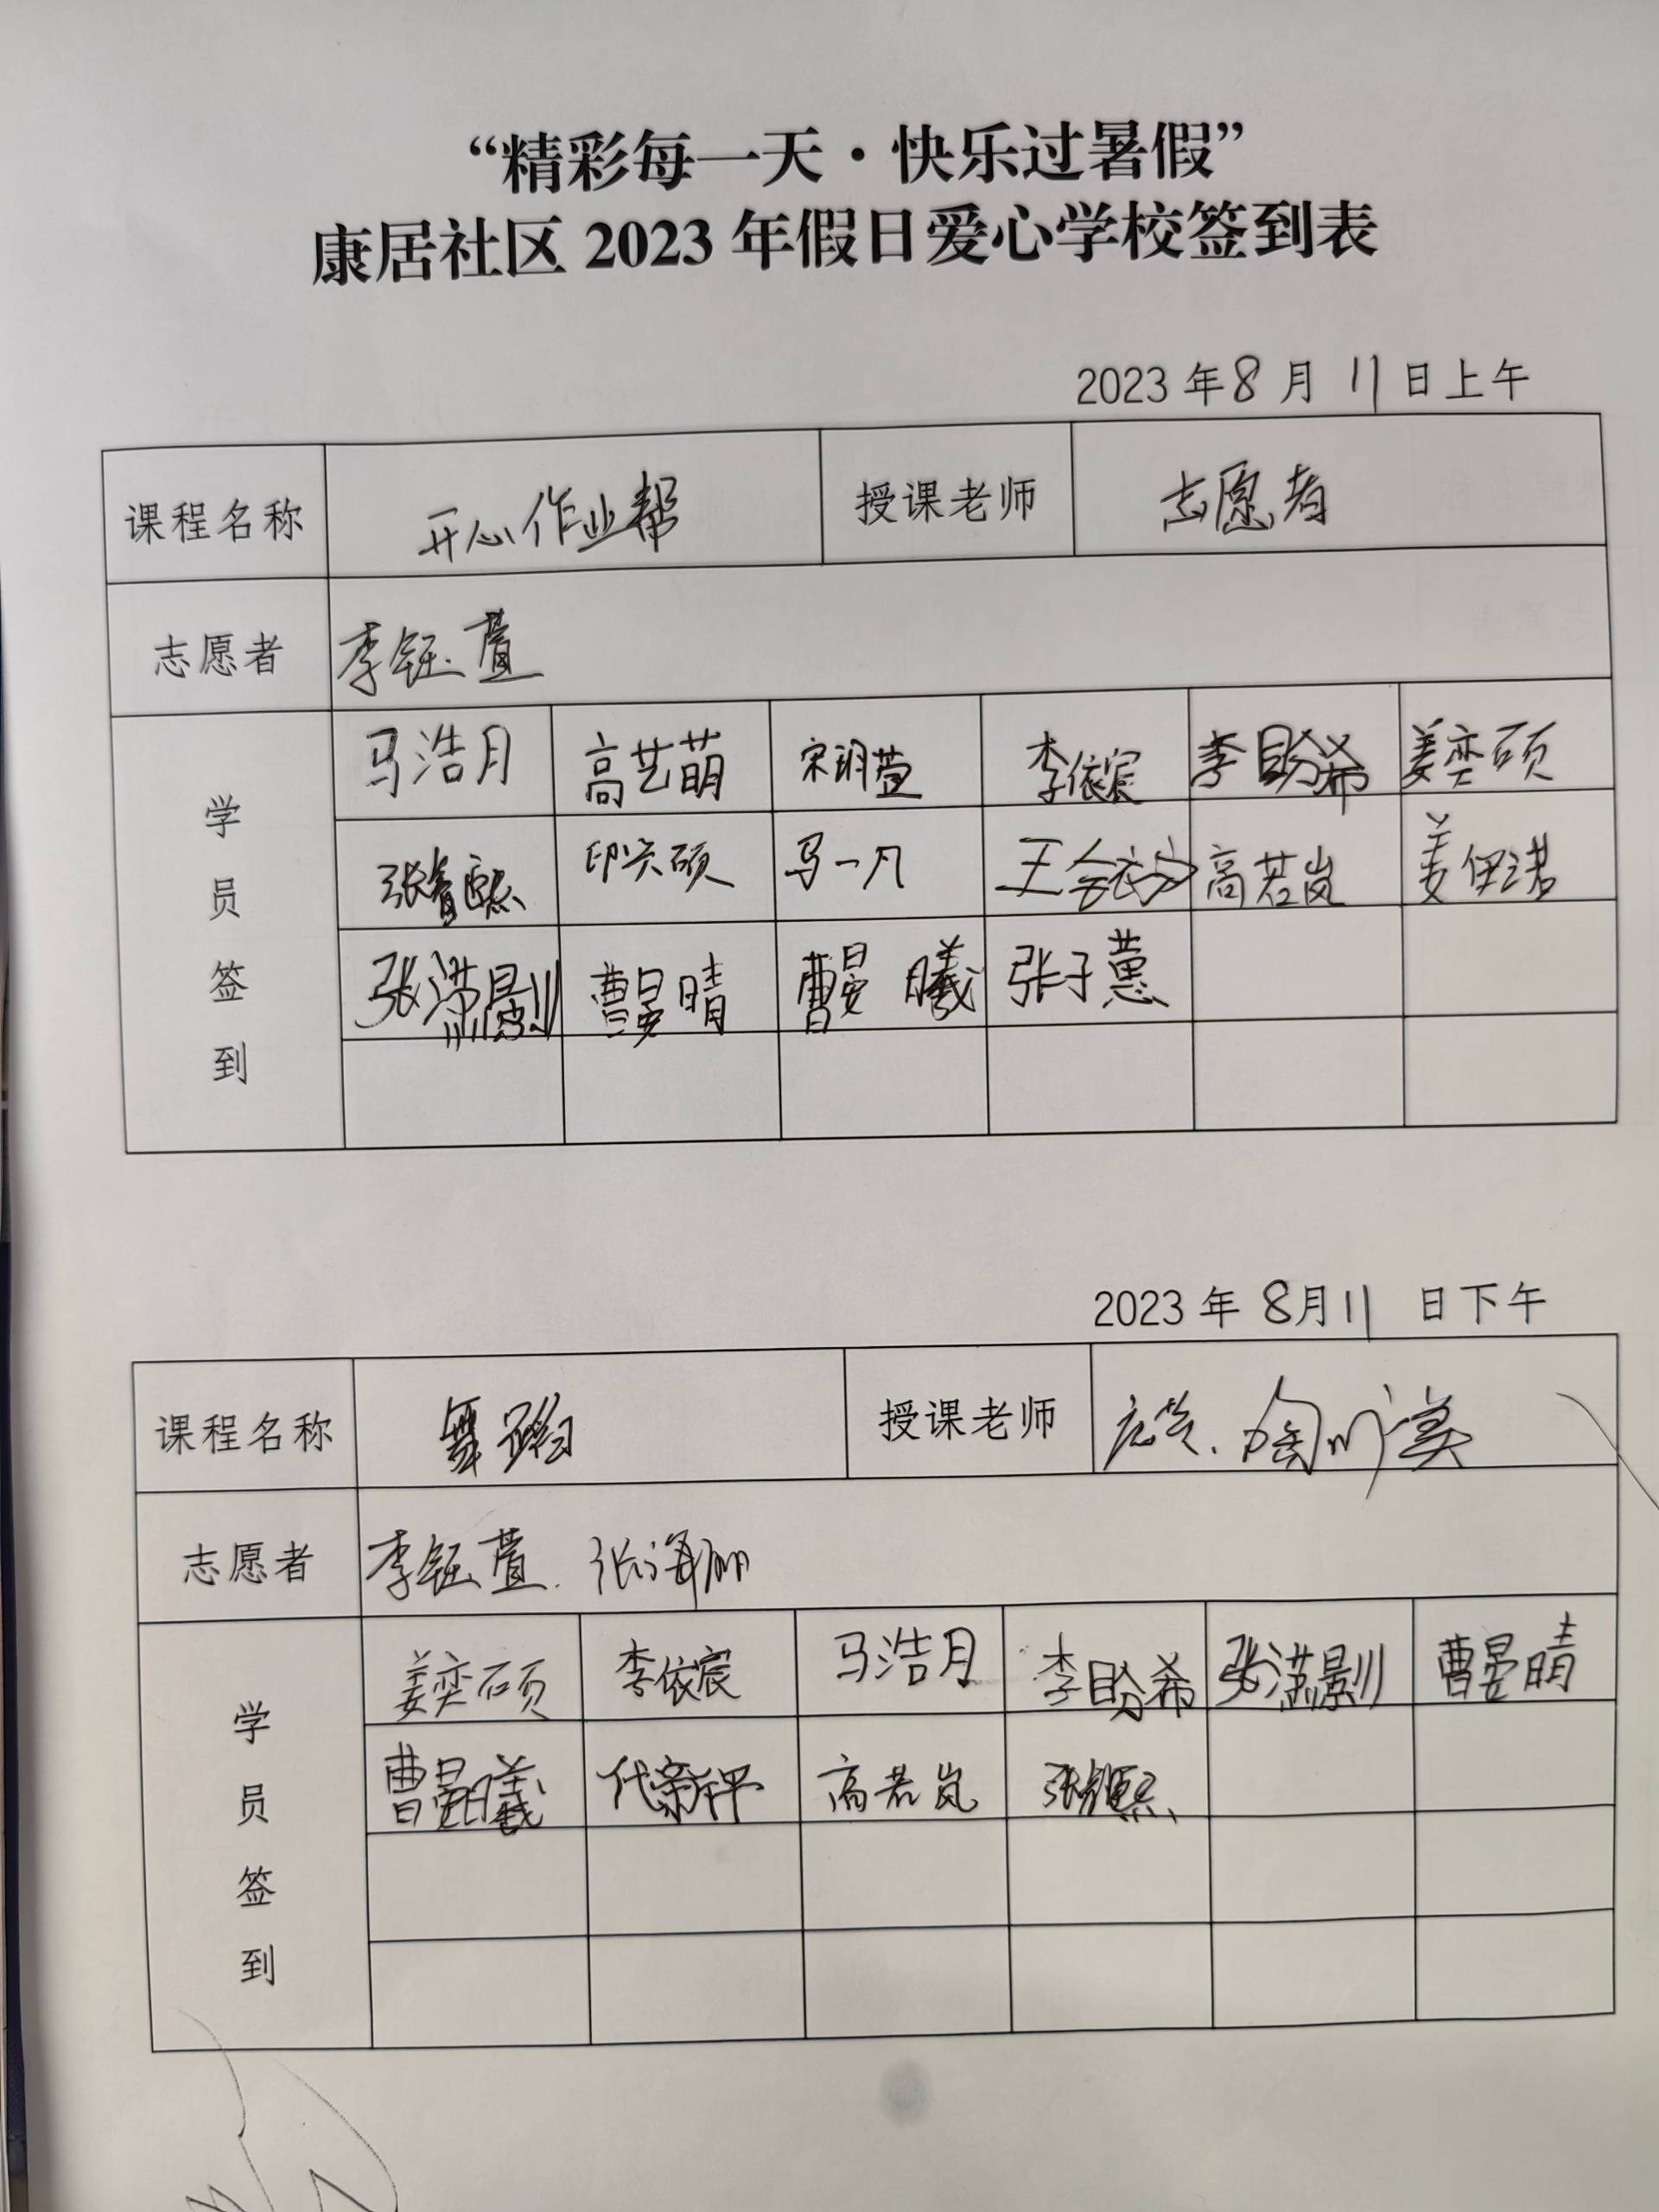 “精彩每一天·快乐过暑假”
康居社区 2023 年假日爱心学校签到表
2023 年 8 月 11 日上午
课程名称 开心作业帮 授课老师 志愿者
志愿者 李钰萱
学员签到
马浩月 高艺萌 宋玥萱 李依宸 李盼希 姜奕硕
张 马一凡 王 高若岚 姜伊诺
张 曹晏晴 曹晏曦 张子蕙
2023 年 8 月 11 日下午
课程名称 舞蹈 授课老师
志愿者 李钰萱. 张海丽
学员签到
姜奕硕 李依宸 马浩月 李盼希 张满 曹晏晴
曹晏曦 代新 高若岚 张